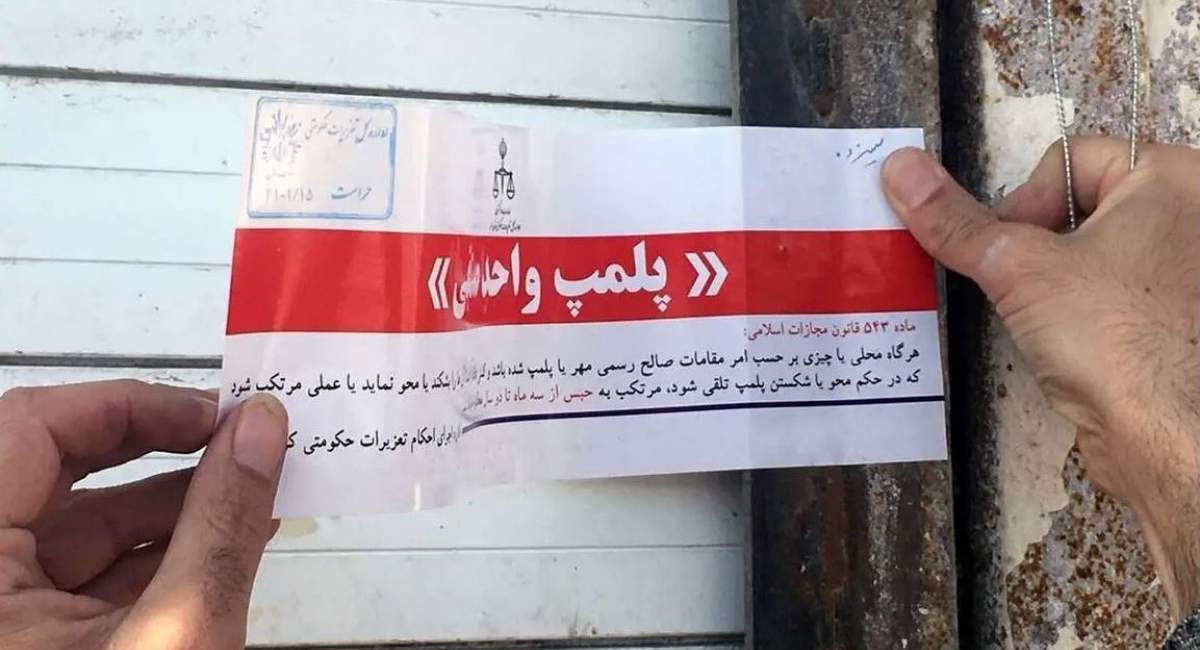 اداره کل تعزیرات حکومتی
حراست
« پلمپ واحد »
ماده ۵۴۳ قانون مجازات اسلامی:
هرگاه محلی یا چیزی بر حسب امر مقامات صالح رسمی مهر یا پلمپ شده باشد و را بشکند یا محو نماید یا عملی مرتکب شود
که در حکم محو یا شکستن پلمپ تلقی شود، مرتکب به حبس از سه ماه تا دو سال
اجرای احکام تعزیرات حکومتی